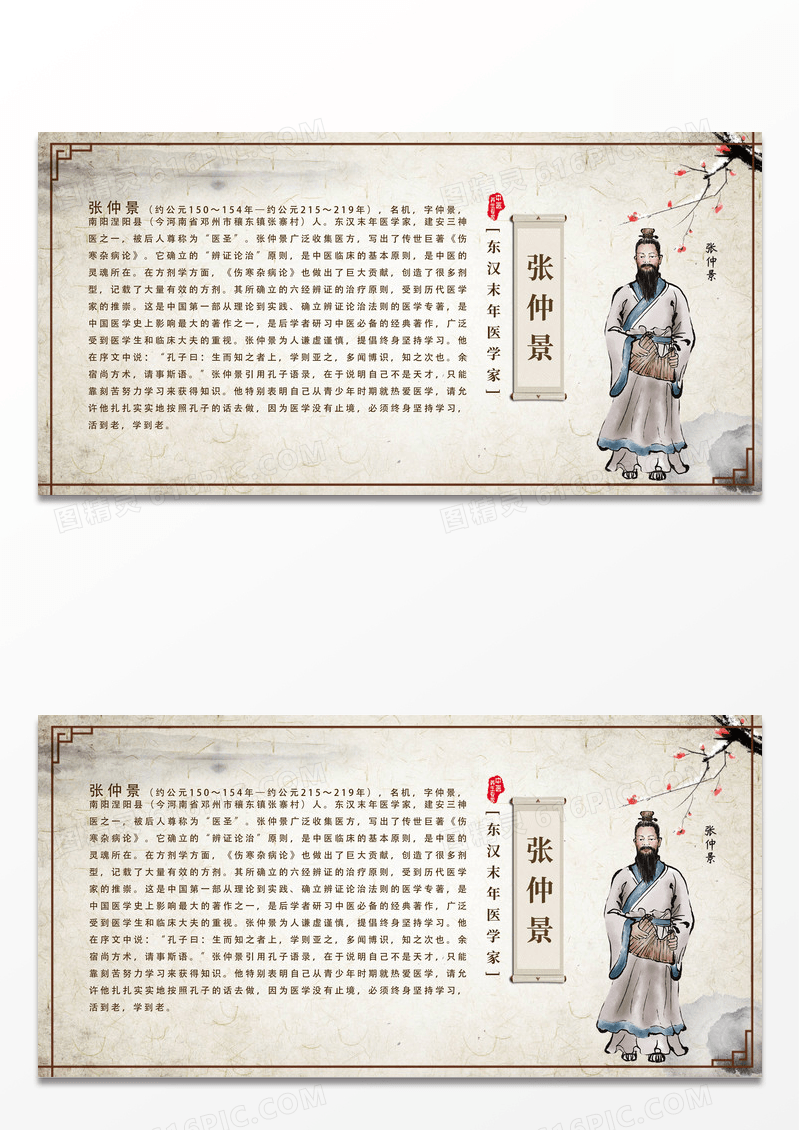 张仲景（约公元150～154年—约公元215～219年），名机，字仲景，
南阳涅阳县（今河南省邓州市穰东镇张寨村）人。东汉末年医学家，建安三神
医之一，被后人尊称为“医圣”。张仲景广泛收集医方，写出了传世巨著《伤
寒杂病论》。它确立的“辨证论治”原则，是中医临床的基本原则，是中医的
灵魂所在。在方剂学方面，《伤寒杂病论》也做出了巨大贡献，创造了很多剂
型，记载了大量有效的方剂。其所确立的六经辨证的治疗原则，受到历代医学
家的推崇。这是中国第一部从理论到实践、确立辨证论治法则的医学专著，是
中国医学史上影响最大的著作之一，是后学者研习中医必备的经典著作，广泛
受到医学生和临床大夫的重视。张仲景为人谦虚谨慎，提倡终身坚持学习。他
在序文中说：“孔子曰：生而知之者上，学则亚之，多闻博识，知之次也。余
宿尚方术，请事斯语。”张仲景引用孔子语录，在于说明自己不是天才，只能
靠刻苦努力学习来获得知识。他特别表明自己从青少年时期就热爱医学，请允
许他扎扎实实地按照孔子的话去做，因为医学没有止境，必须终身坚持学习，
活到老，学到老。
[东汉末年医学家]
张仲景
张仲景
张仲景（约公元150～154年—约公元215～219年），名机，字仲景，
南阳涅阳县（今河南省邓州市穰东镇张寨村）人。东汉末年医学家，建安三神
医之一，被后人尊称为“医圣”。张仲景广泛收集医方，写出了传世巨著《伤
寒杂病论》。它确立的“辨证论治”原则，是中医临床的基本原则，是中医的
灵魂所在。在方剂学方面，《伤寒杂病论》也做出了巨大贡献，创造了很多剂
型，记载了大量有效的方剂。其所确立的六经辨证的治疗原则，受到历代医学
家的推崇。这是中国第一部从理论到实践、确立辨证论治法则的医学专著，是
中国医学史上影响最大的著作之一，是后学者研习中医必备的经典著作，广泛
受到医学生和临床大夫的重视。张仲景为人谦虚谨慎，提倡终身坚持学习。他
在序文中说：“孔子曰：生而知之者上，学则亚之，多闻博识，知之次也。余
宿尚方术，请事斯语。”张仲景引用孔子语录，在于说明自己不是天才，只能
靠刻苦努力学习来获得知识。他特别表明自己从青少年时期就热爱医学，请允
许他扎扎实实地按照孔子的话去做，因为医学没有止境，必须终身坚持学习，
活到老，学到老。
[东汉末年医学家]
张仲景
张仲景